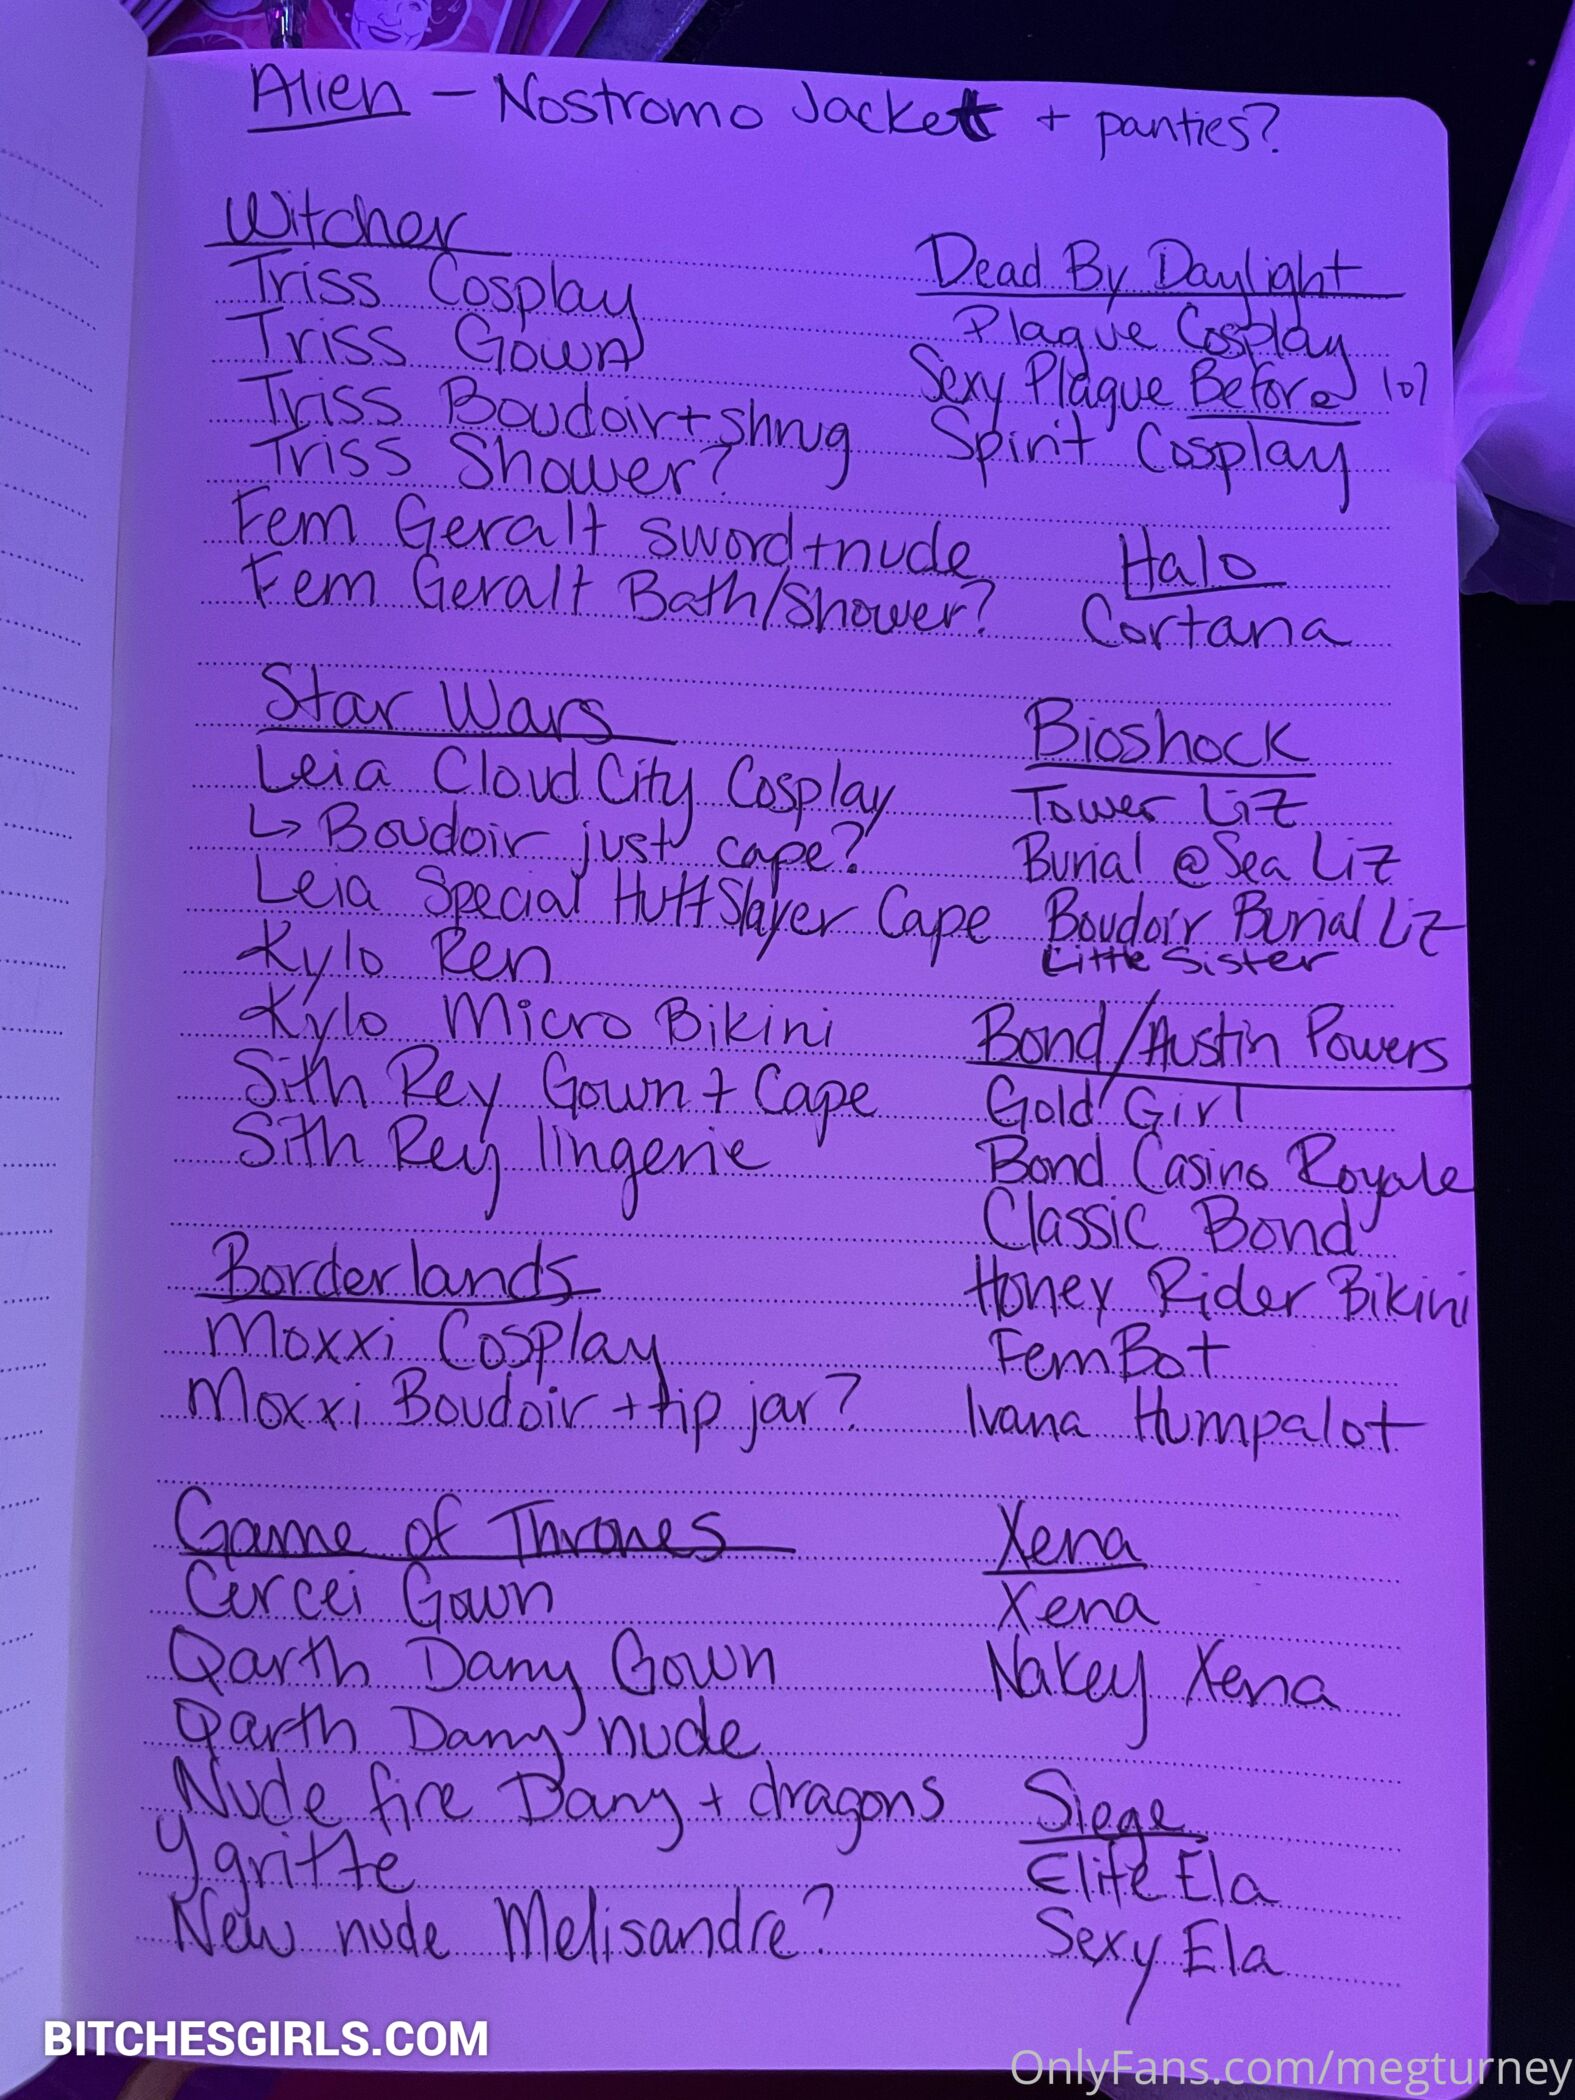 Alien - Nostromo Jacket + panties?
Witcher
Triss Cosplay
Triss Gown
Triss Boudoir + shrug
Triss Shower?
Fem Geralt sword + nude
Fem Geralt Bath/Shower?
Star Wars
Leia Cloud City Cosplay
↳ Boudoir just cape?
Leia Special Hutt Slayer Cape
Kylo Ren
Kylo Micro Bikini
Sith Rey Gown + Cape
Sith Rey lingerie
Borderlands
Moxxi Cosplay
Moxxi Boudoir + tip jar?
Game of Thrones
Cercei Gown
Qarth Dany Gown
Qarth Dany nude
Nude fire Dany + dragons
Ygritte
New nude Melisandre?
Dead By Daylight
Plague Cosplay
Sexy Plague Before lol
Spirit Cosplay
Halo
Cortana
Bioshock
Tower Liz
Burial @ Sea Liz
Boudoir Burial Liz
Little Sister
Bond/Austin Powers
Gold Girl
Bond Casino Royale
Classic Bond
Honey Rider Bikini
FemBot
Ivana Humpalot
Xena
Xena
Nakey Xena
Siege
Elite Ela
Sexy Ela
BITCHESGIRLS.COM
OnlyFans.com/megturney